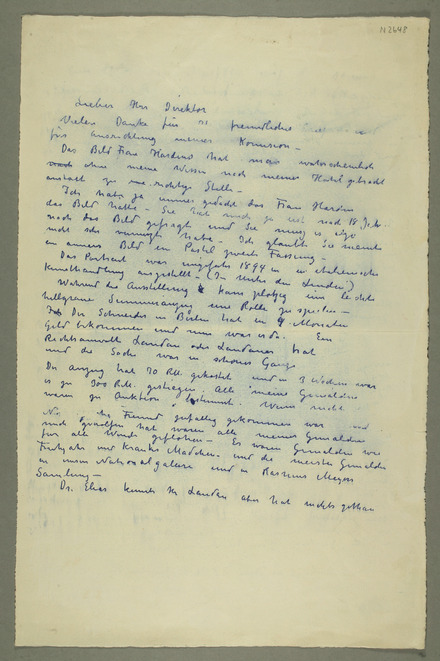 N 2643
Lieber Herr Direktor
Vielen Dank für freundliche
für Ausrichtung meiner Komission –
Das Bild Frau Hardens hat man wahrscheinlich
ohne meine Wissen nach meiner gebracht
anstatt zu richtige Stelle –
Ich habe ja immer gedacht das Frau Harden
das Bild hatte – Sie hat mich ja nach 18 Jahr
nach das Bild gefragt und Sie muss es
nicht habe – Ich glaubte Sie meinte
ein anderes Bild in Pastel zweite Fassung –
Das Portrait war ungefähr 1894 in
Kunsthandlung ausgestellt – (In Unter den Linden)
Während die Ausstellung kam plötzlich
hellgraue Sommeranzug eine Rolle zu spielen –
Der Schneider in Berlin hat in 4 Monaten
Geld bekommen und nun war es da. Ein
Rechtsanwalt Landau oder Landauer hat
und die Sache war in schönes Gang
Der Anzug hat 70 RM. gekostet und in 3 Wochen war
es zu 300 RM. gestiegen. Alle meine Gemälden
waren zu Auktion bestimmt. Wenn nicht
Freund gefällig gekommen war und
mich geholfen hat waren alle meine Gemälden
für alle Winde geflohen – Es waren Gemälden wie
Frühjahr und Kranke Mädchen und die meiste Gemälden
in unser Nationalgalerie und in Rasmus Meyers
Samling –
Dr. Elias kannte Hr Landau aber hat nichts gethan